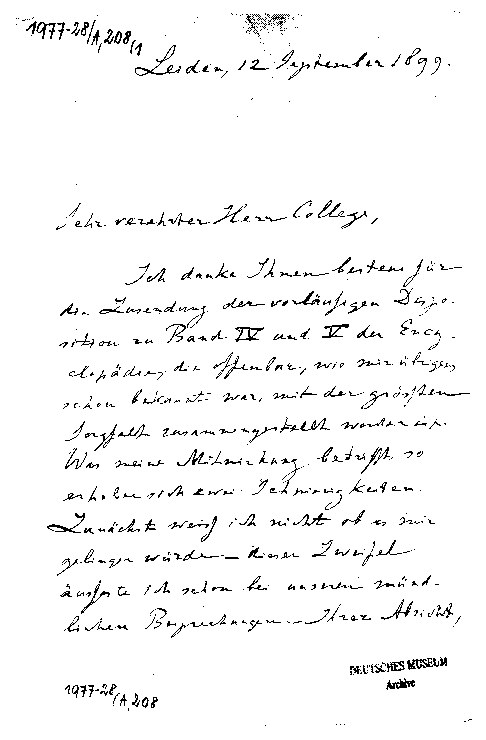 1977-28/A,208/1
Leiden, 12 September 1899.
Sehr verehrter Herr College,
Ich danke Ihnen bestens für
die Zusendung der vorläufigen Dispo-
sition zu Band IV und V der Ency-
clopädie, die offenbar, wie mir übrigens
schon bekannt war, mit der grössten
Sorgfalt zusammengestellt worden ist.
Was meine Mitwirkung betrifft, so
erheben sich zwei Schwierigkeiten.
Zunächst weiss ich nicht ob es mir
gelingen würde – diesen Zweifel
äusserte ich schon bei unseren münd-
lichen Besprechungen – Ihrer Absicht,
DEUTSCHES MUSEUM
Archiv
1977-28/A,208